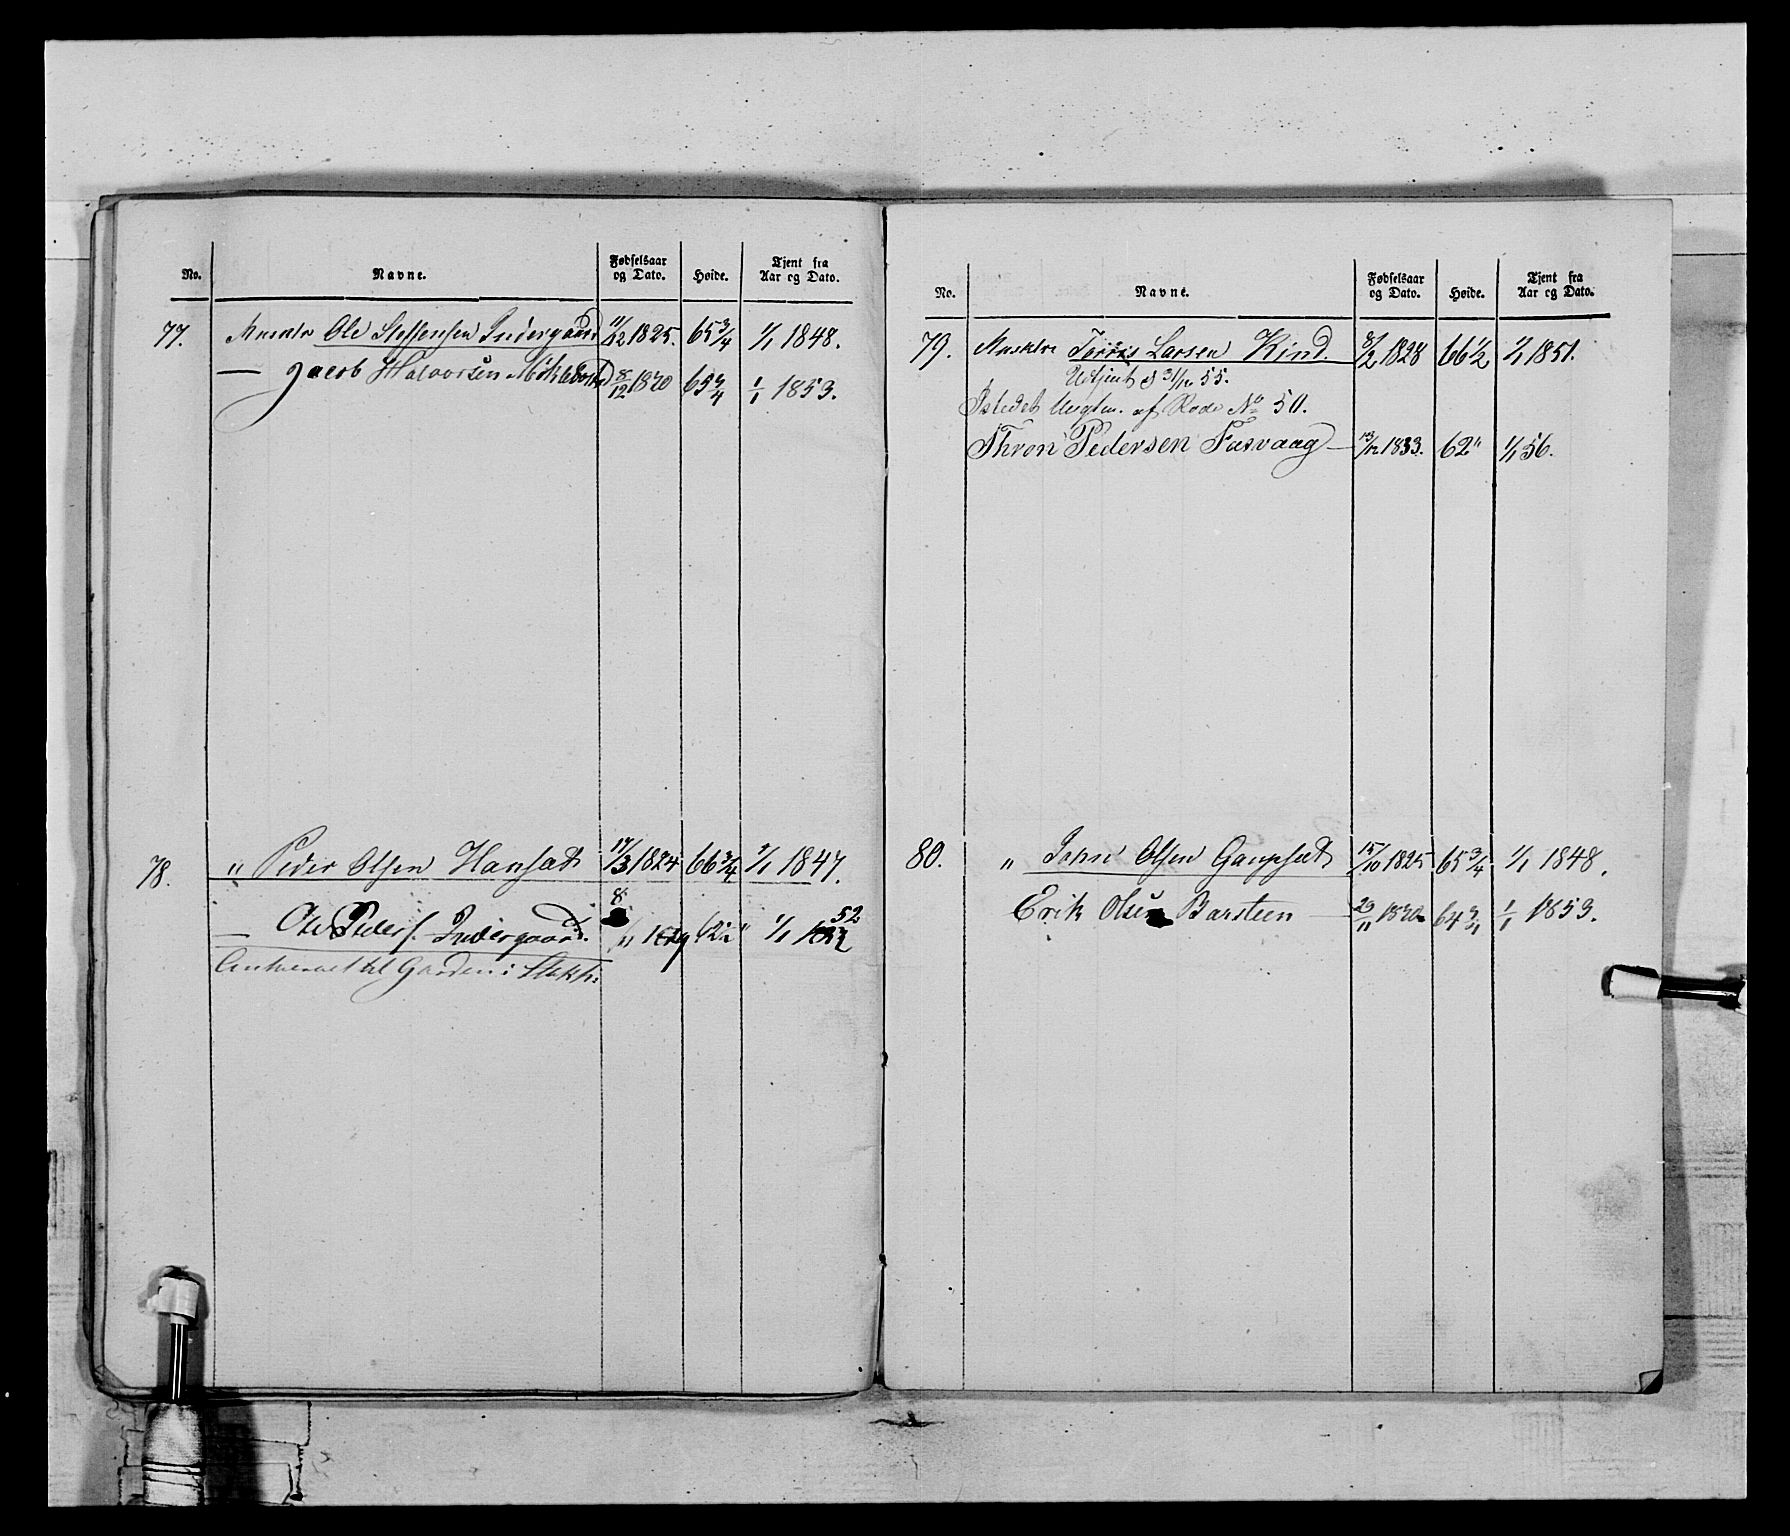 No. Navne. Fødselsaar og Dato. Høide. Tjent fra Aar og Dato.
77. Ole Steffensen Indergaard 11/12 1825. 65 3/4 1/1 1848.
— Jacob Halvorsen 8/12 1830 65 3/4 1/1 1853.
78. " Peder Olsen 17/3 1824 66 3/4 1/1 1847.
— Ole Peders. Indergaard. 8 /11 62 " 1/1 52
til Garden i Stokh:
No. Navne. Fødselsaar og Dato. Høide. Tjent fra Aar og Dato.
79. Larsen Kind. 8/2 1828 66 1/2 1/1 1851.
Udtjent d 31/12 55.
Istedet af Rode No 50.
Thron Pedersen Fasvaag — 13/12 1833. 62 " 1/1 56.
80. " John Olsen Gaupset 15/10 1825 65 3/4 1/1 1848.
Erik Olsen Barsteen 29/11 64 3/4 1/1 1853.